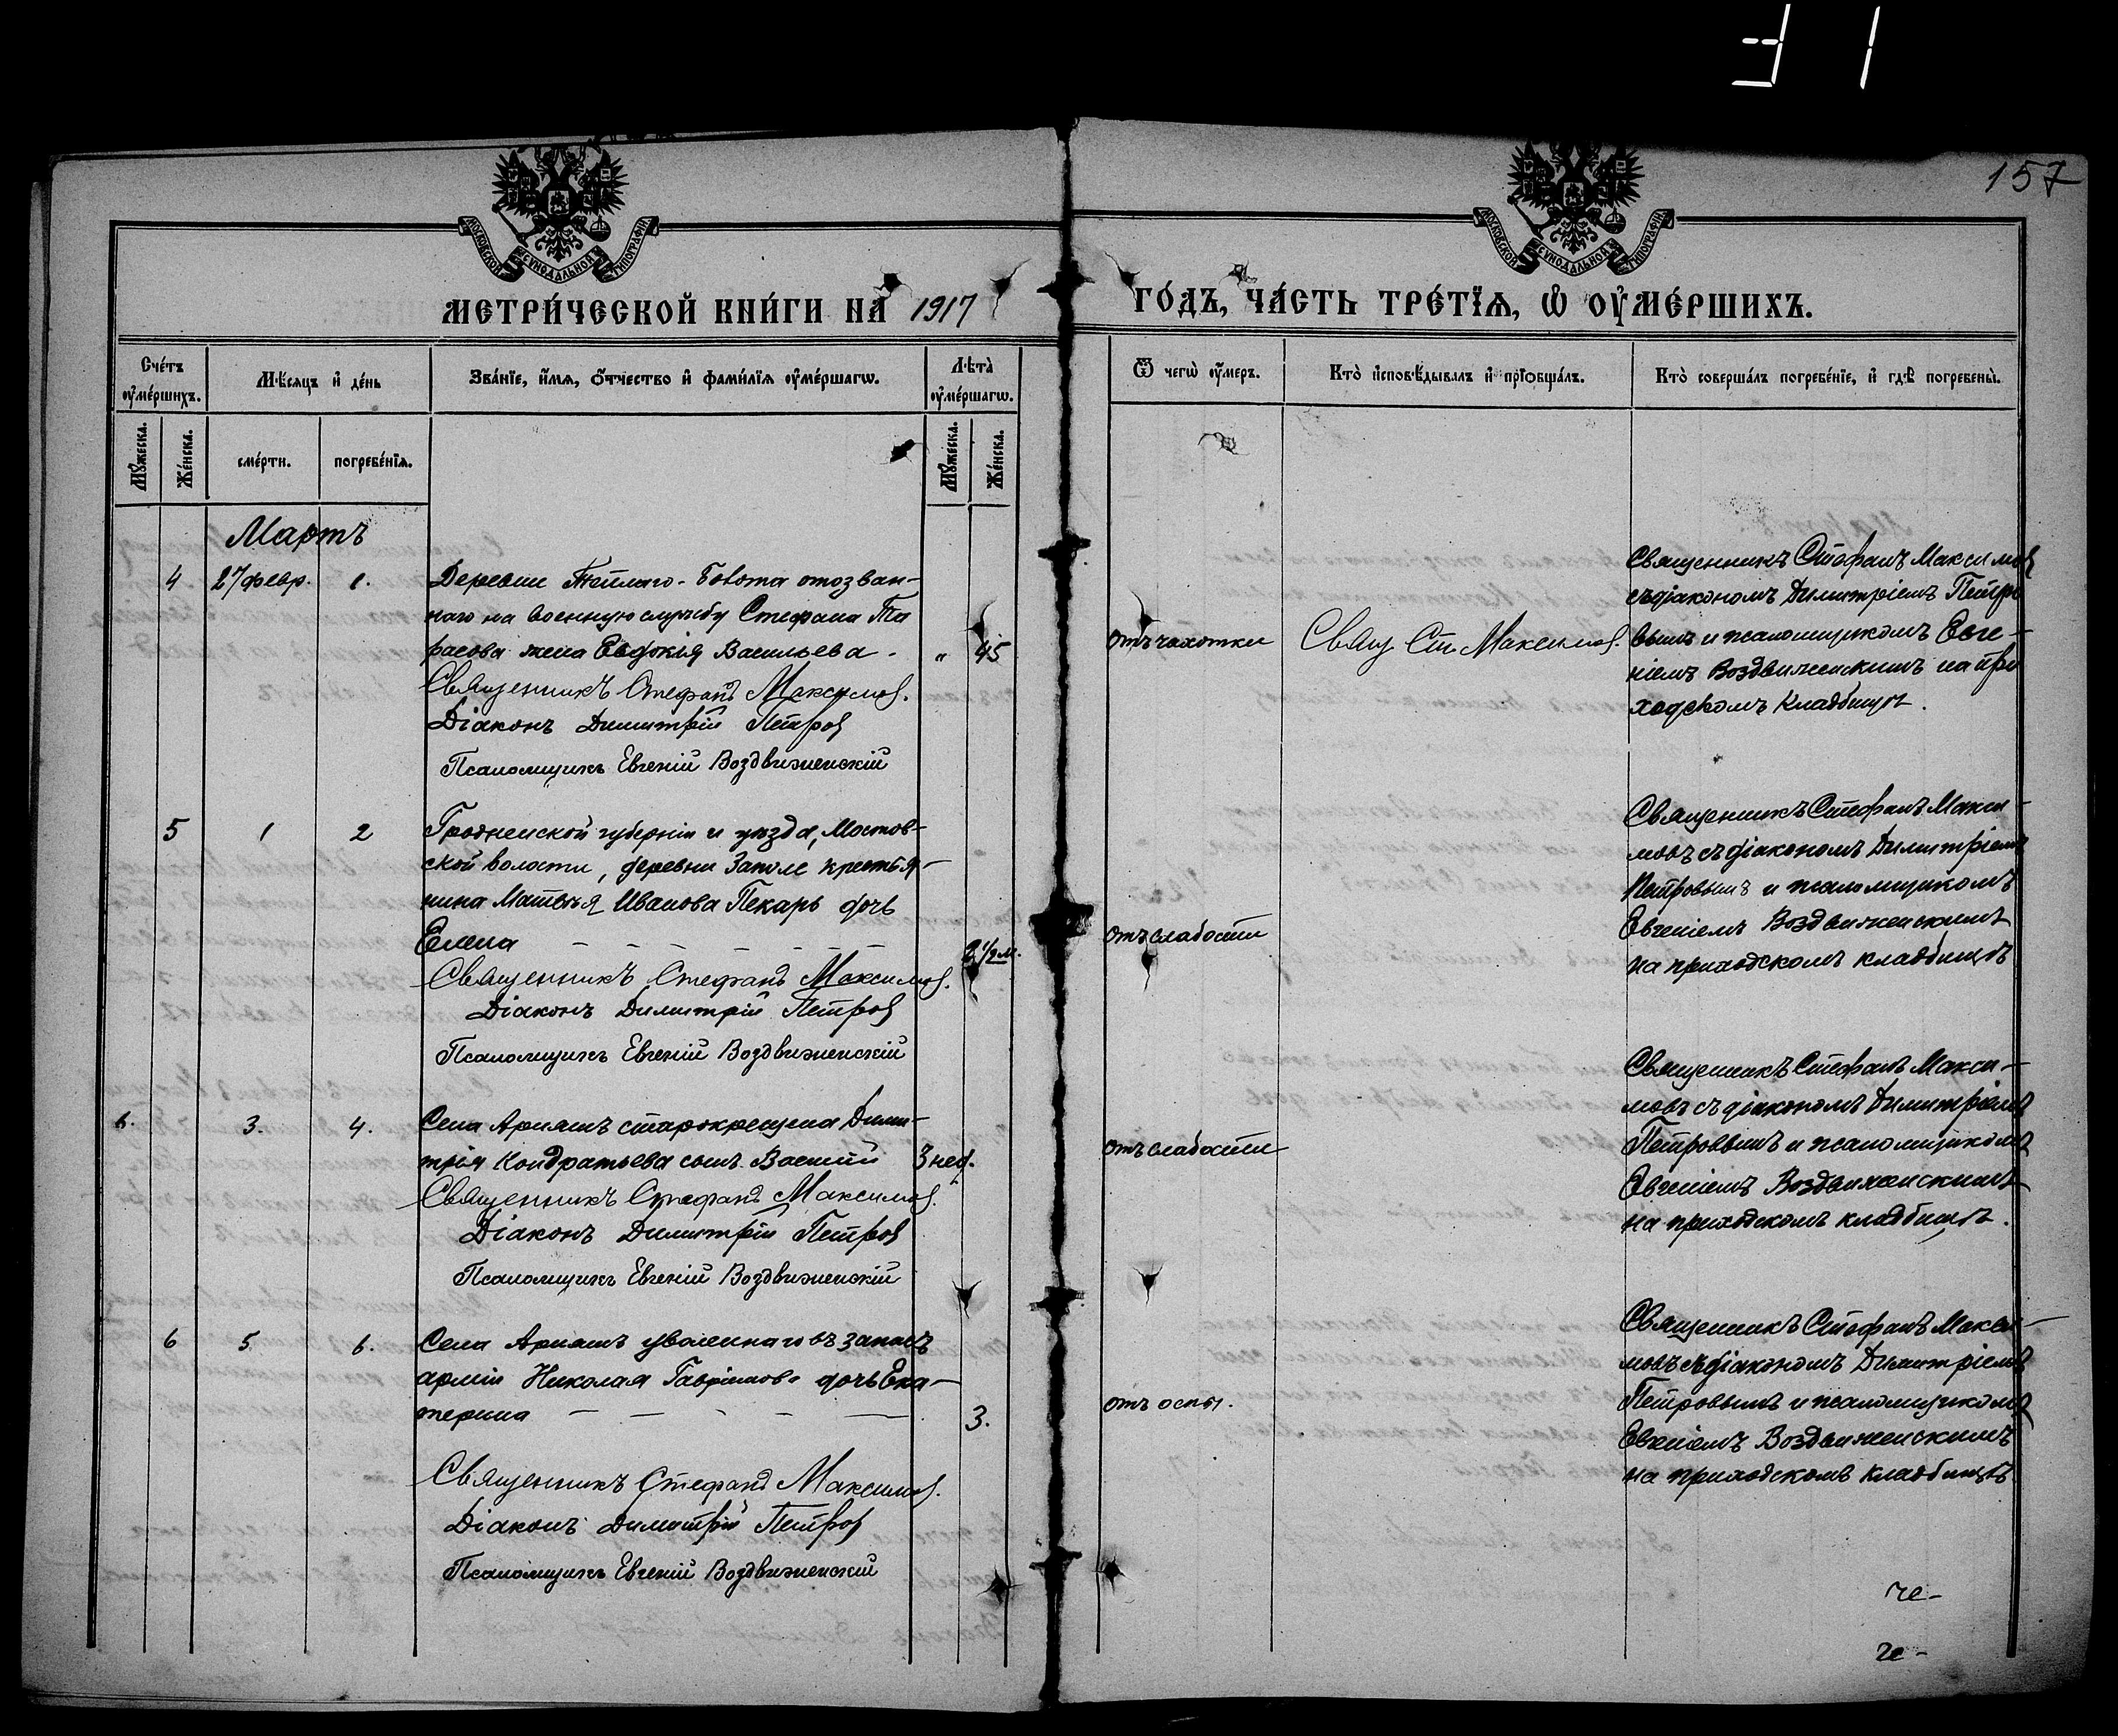 Е 1
157
МОСКОВСКОЙ СѴНОДАЛЬНОЙ ТИПОГРАФІИ
МОСКОВСКОЙ СѴНОДАЛЬНОЙ ТИПОГРАФІИ
МЕТРИ́ЧЕСКОЙ КНИ́ГИ НА 1917
ГО́ДЪ, ЧА́СТЬ ТРЕ́ТЇѦ, Ѡ҆ ОУ҆МЕ́РШИХЪ.
Сче́тъ оу҆ме́ршихъ.
Мѣ́сѧцъ и҆ де́нь
Зва́нїе, и҆́мѧ, ѻ҆́тчество и҆ фами́лїѧ оу҆ме́ршагѡ.
Лѣта̀ оу҆ме́ршагѡ.
Ѿ чегѡ̀ оу҆́меръ.
Кто̀ и҆сповѣ́дывалъ и҆ прїѡбща́лъ.
Кто̀ соверша́лъ погребе́нїе, и҆ гдѣ̀ погребены̀.
Мꙋ́жеска.
Же́нска.
сме́рти.
погребе́нїѧ.
Мꙋ́жеска.
Же́нска.
Мартъ
4 27 февр. 1.
Деревни Теплаго-Болота отозван-
наго на военную службу Стефана Та
расова жена Евдокія Васильева. „ 45
Священникъ Стефанъ Максимов.
Діаконъ Димитрій Петров
Псаломщикъ Евгеній Воздвиженскій
отъ чахотки
Свящ Ст. Максимов.
Священникъ Стефанъ Максимов
съ діакономъ Димитріемъ Петро
вымъ и псаломщикомъ Евге-
ніемъ Воздвиженскимъ на при
ходскомъ кладбищѣ.
5 1 2
Гродненской губерніи и уѣзда, Мостов-
ской волости, деревни Заполе крестья-
нина Матвѣя Иванова Пекарь дочь
Елена 2 1/2 м.
Священникъ Стефанъ Максимов.
Діаконъ Димитрій Петров
Псаломщикъ Евгеній Воздвиженскій
отъ слабости
Священникъ Стефанъ Макси-
мовъ съ діакономъ Димитріемъ
Петровымъ и псаломщикомъ
Евгеніемъ Воздвиженскимъ
на приходскомъ кладбищѣ
6. 3. 4.
Села Аришъ старокрещена Дими-
трія Кондратьева сынъ Василій 3 нед.
Священникъ Стефанъ Максимов.
Діаконъ Димитрій Петров
Псаломщикъ Евгеній Воздвиженскій
отъ слабости
Священникъ Стефанъ Макси-
мовъ съ діакономъ Димитріемъ
Петровымъ и псаломщикомъ
Евгеніемъ Воздвиженскимъ
на приходскомъ кладбищѣ.
6 5. 6.
Села Аришъ уволеннаго въ запасъ
арміи Николая Гаврилова дочь Ека-
терина 3.
Священникъ Стефанъ Максимов.
Діаконъ Димитрій Петров
Псаломщикъ Евгеній Воздвиженскій
отъ оспы.
Священникъ Стефанъ Макси-
мовъ съ діакономъ Димитріемъ
Петровымъ и псаломщикомъ
Евгеніемъ Воздвиженскимъ
на приходскомъ кладбищѣ
че-
че-